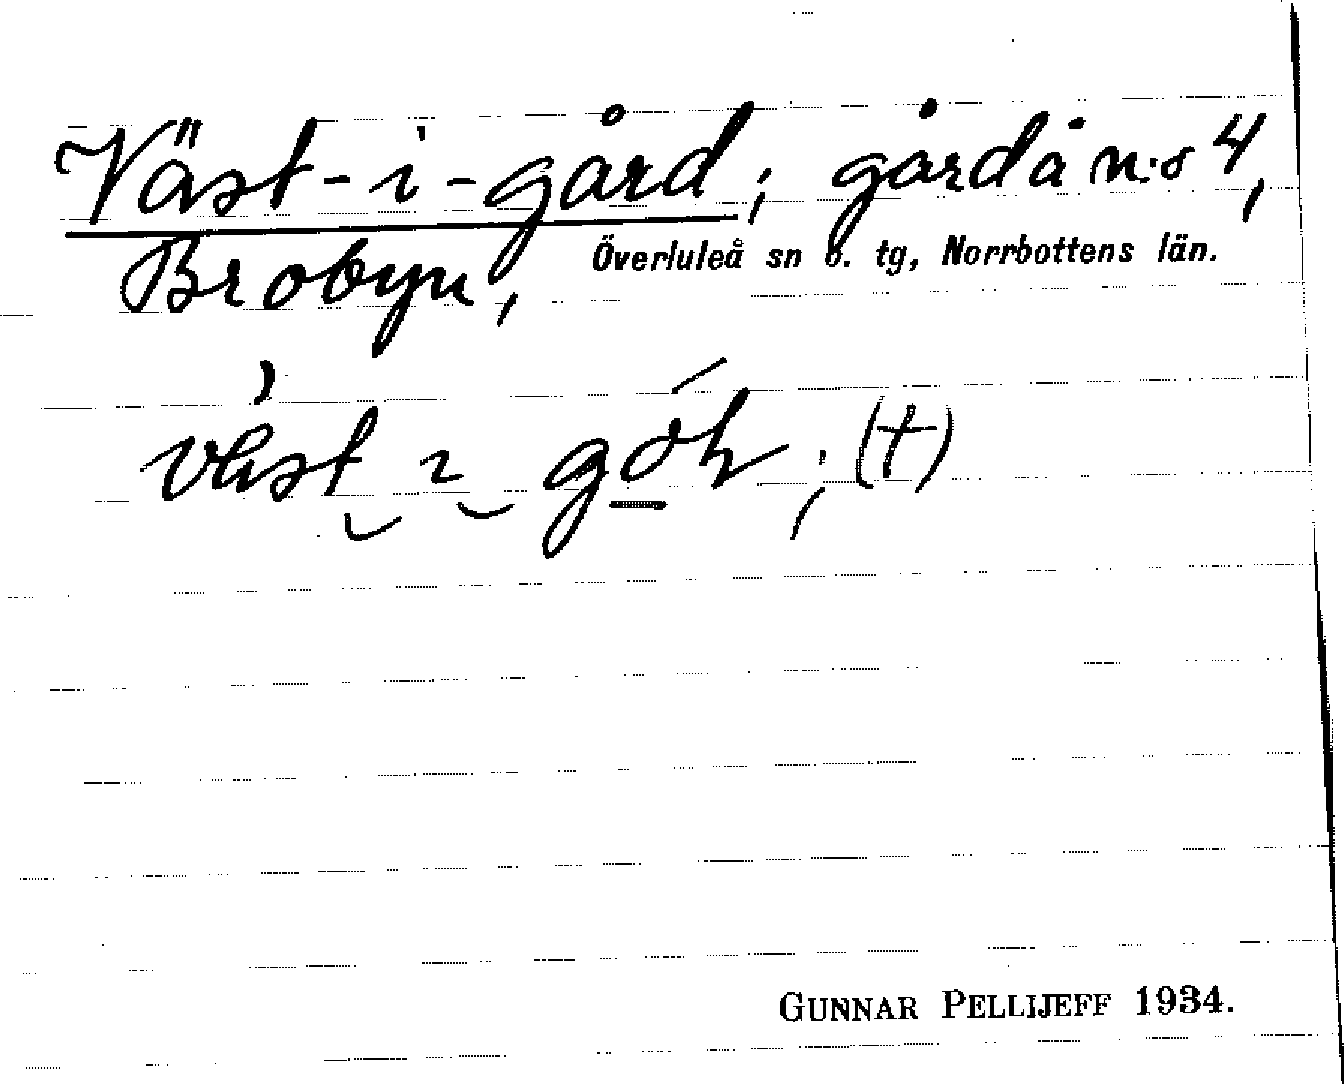 Väst-i-gård; gård å n:o 4,
Brobyn, Överluleå sn o. tg, Norrbottens län.
(†)
GUNNAR PELLIJEFF 1934.